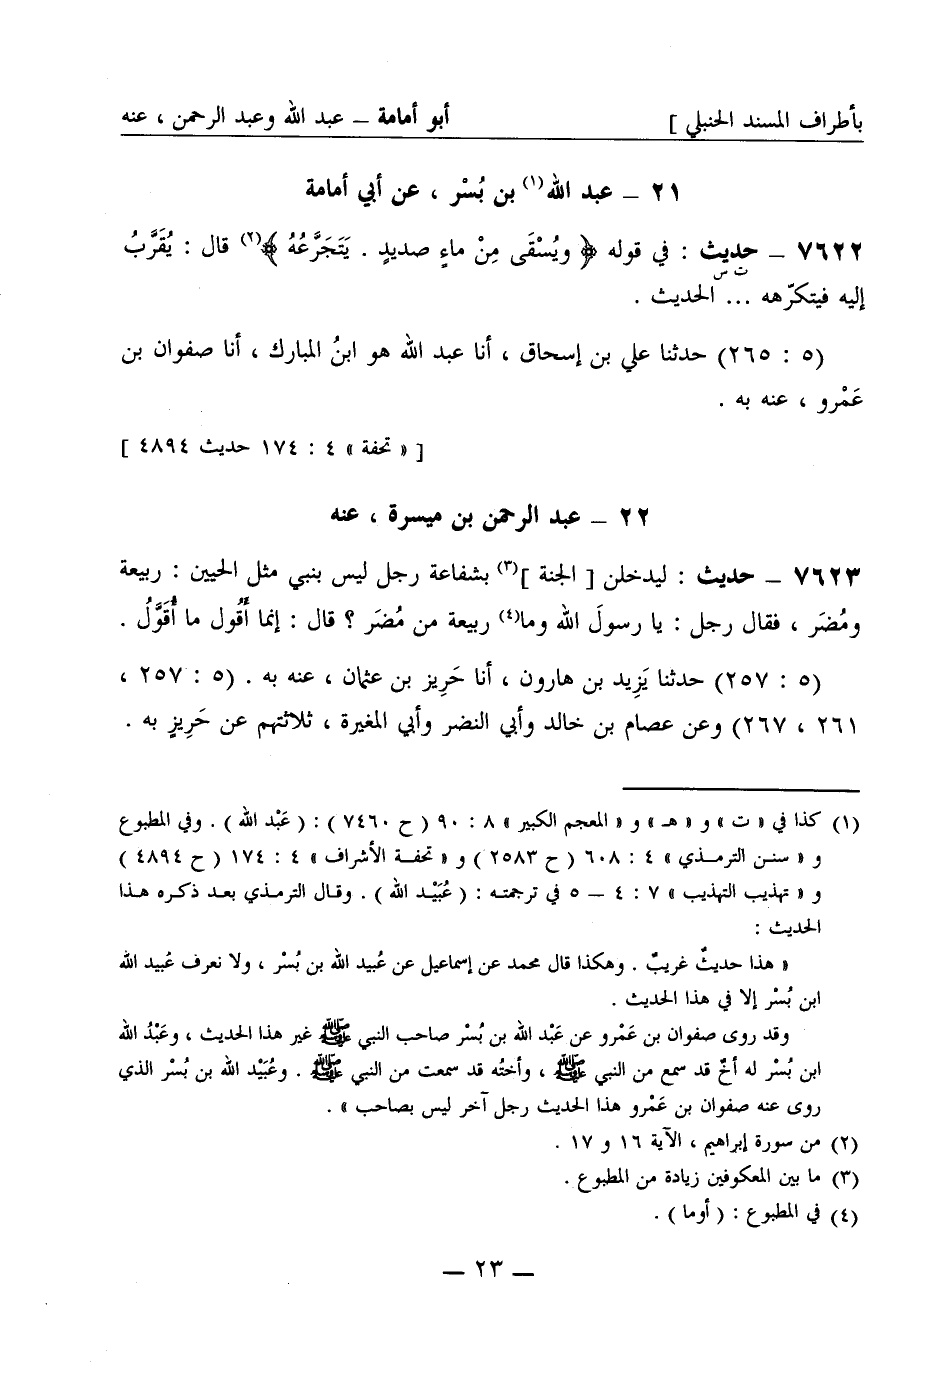 بأطراف المسند الحنبلي ] أبو أمامة ــ عبد الله وعبد الرحمن ، عنه
٢١ ــ عبد الله(١) بن بُسْر ، عن أبي أمامة
٧٦٢٢ ــ حديث : في قوله ﴿ ويُسْقَى مِنْ ماءٍ صديدٍ . يَتَجَرَّعُهُ ﴾(٢) قال : يُقَرَّبُ
ت س
إليه فيتكرّهه ... الحديث .
(٥ : ٢٦٥) حدثنا علي بن إسحاق ، أنا عبد الله هو ابنُ المبارك ، أنا صفوان بن
عَمْرو ، عنه به .
[ « تحفة » ٤ : ١٧٤ حديث ٤٨٩٤ ]
٢٢ ــ عبد الرحمن بن ميسرة ، عنه
٧٦٢٣ ــ حديث : ليدخلن [ الجنة ](٣) بشفاعة رجل ليس بنبي مثل الحيين : ربيعة
ومُضَر ، فقال رجل : يا رسولَ الله وما(٤) ربيعة من مُضَر ؟ قال : إنما أَقُول ما أُقَوَّلُ .
(٥ : ٢٥٧) حدثنا يَزِيد بن هارون ، أنا حَرِيز بن عثمان ، عنه به . (٥ : ٢٥٧ ،
٢٦١ ، ٢٦٧) وعن عصام بن خالد وأبي النضر وأبي المغيرة ، ثلاثتهم عن حَرِيزٍ به .
(١) كذا في « ت » و « هـ » و « المعجم الكبير » ٨ : ٩٠ ( ح ٧٤٦٠ ) : ( عَبْد الله ) . وفي المطبوع
و « سنن الترمذي » ٤ : ٦٠٨ ( ح ٢٥٨٣ ) و « تحفة الأشراف » ٤ : ١٧٤ ( ح ٤٨٩٤ )
و « تهذيب التهذيب » ٧ : ٤ ــ ٥ في ترجمته : ( عُبَيْد الله ) . وقال الترمذي بعد ذكره هذا
الحديث :
« هذا حديثٌ غريبٌ . وهكذا قال محمد عن إسماعيل عن عُبيد الله بن بُسْر ، ولا نعرف عُبيد الله
ابن بُسْر إلا في هذا الحديث .
وقد روى صفوان بن عَمْرو عن عَبْد الله بن بُسْر صاحب النبي ﷺ غير هذا الحديث ، وعَبْدُ الله
ابن بُسْر له أخٌ قد سمع من النبي ﷺ ، وأختُه قد سمعت من النبي ﷺ . وعُبَيْد الله بن بُسْر الذي
روى عنه صفوان بن عَمْرو هذا الحديث رجل آخر ليس بصاحب » .
(٢) من سورة إبراهيم ، الآية ١٦ و ١٧ .
(٣) ما بين المعكوفين زيادة من المطبوع .
(٤) في المطبوع : ( أوما ) .
ــ ٢٣ ــ